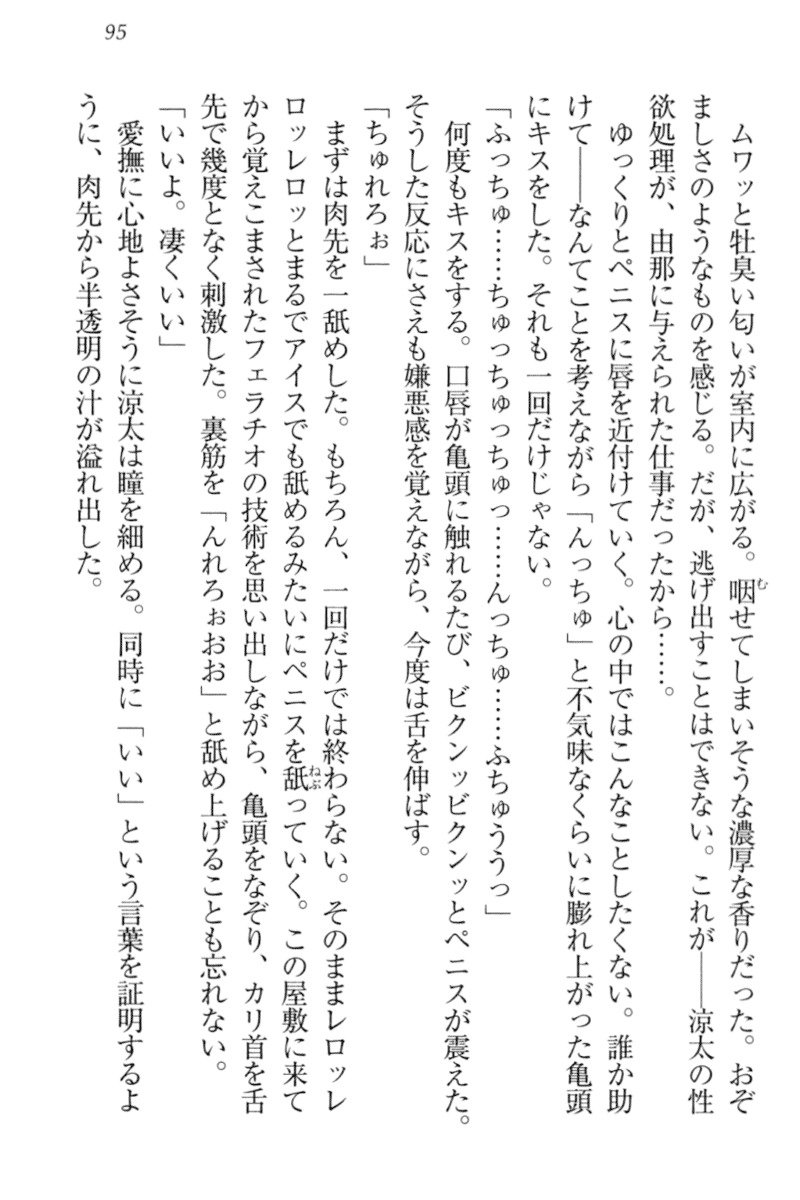 95
ムワッと牡臭い匂いが室内に広がる。咽せてしまいそうな濃厚な香りだった。おぞ
ましさのようなものを感じる。だが、逃げ出すことはできない。これが――涼太の性
欲処理が、由那に与えられた仕事だったから……。
ゆっくりとペニスに唇を近付けていく。心の中ではこんなことしたくない。誰か助
けて――なんてことを考えながら「んっちゅ」と不気味なくらいに膨れ上がった亀頭
にキスをした。それも一回だけじゃない。
「ふっちゅ……ちゅっちゅっちゅっ……んっちゅ……ふちゅううっ」
何度もキスをする。口唇が亀頭に触れるたび、ビクンッビクンッとペニスが震えた。
そうした反応にさえも嫌悪感を覚えながら、今度は舌を伸ばす。
「ちゅれろぉ」
まずは肉先を一舐めした。もちろん、一回だけでは終わらない。そのままレロッレ
ロッレロッとまるでアイスでも舐めるみたいにペニスを舐っていく。この屋敷に来て
から覚えこまされたフェラチオの技術を思い出しながら、亀頭をなぞり、カリ首を舌
先で幾度となく刺激した。裏筋を「んれろぉおお」と舐め上げることも忘れない。
「いいよ。凄くいい」
愛撫に心地よさそうに涼太は瞳を細める。同時に「いい」という言葉を証明するよ
うに、肉先から半透明の汁が溢れ出した。